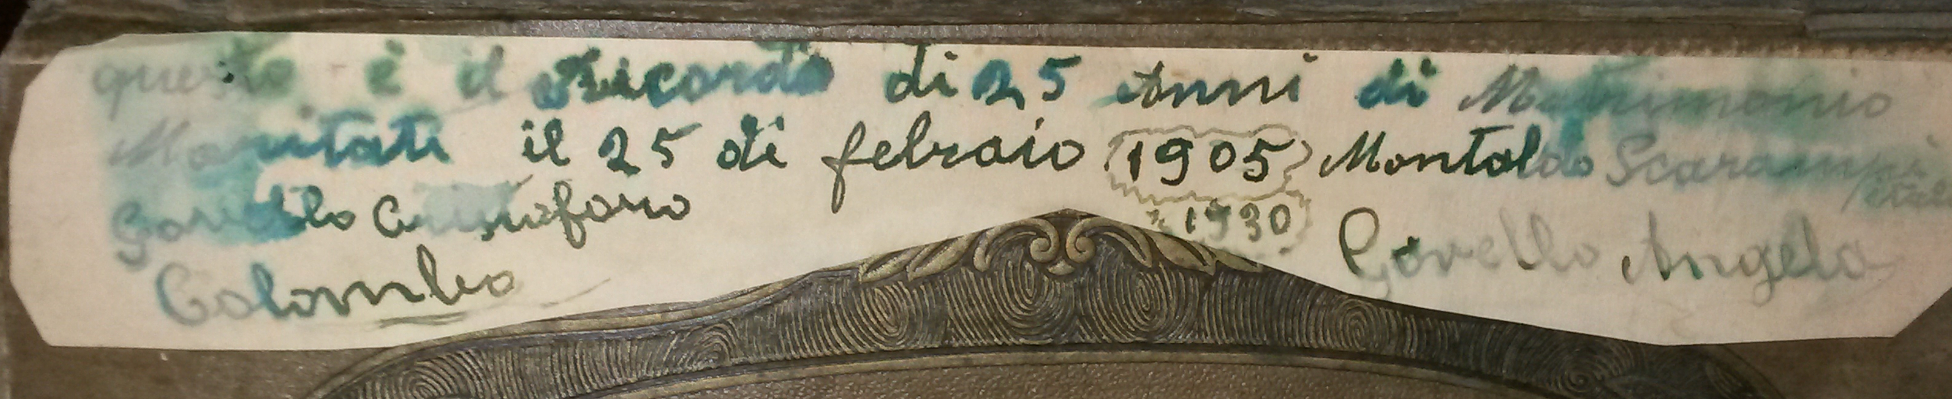 questo è il Ricordo di 25 Anni di Matrimonio
Maritati il 25 di febraio 1905 Montaldo Scarampi
Govello Cristoforo 1930 Govello Angela
Colombo